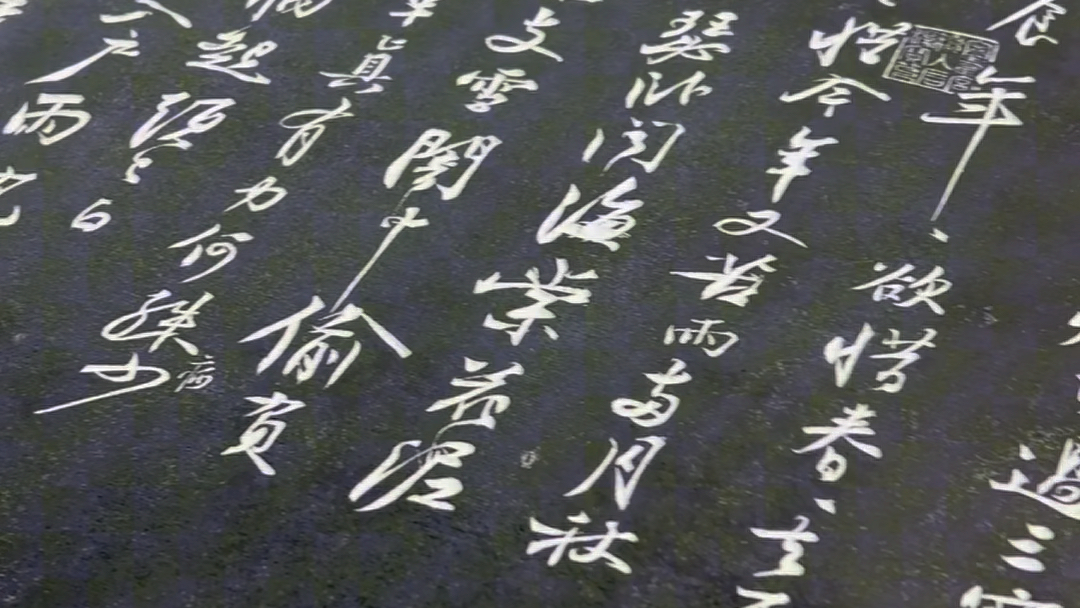 過三
食年〻欲惜春〻去
惜今年又苦雨兩月秋
瑟臥聞海棠花泥
支雪闇中偷負
半真有力何殊病少
病起頭已白
入戶雨勢